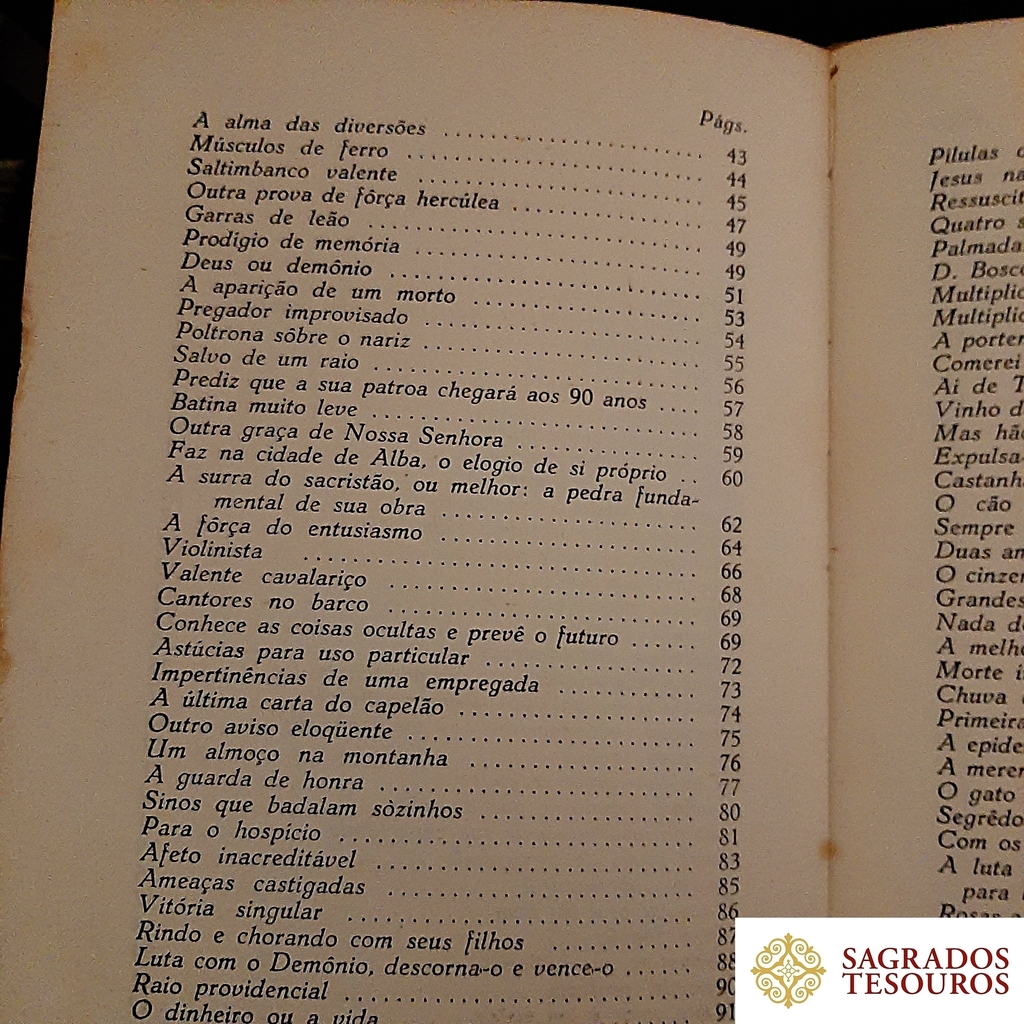 Págs.
A alma das diversões ........ 43
Músculos de ferro ........ 44
Saltimbanco valente ........ 45
Outra prova de fôrça hercúlea ........ 47
Garras de leão ........ 49
Prodígio de memória ........ 49
Deus ou demônio ........ 51
A aparição de um morto ........ 53
Pregador improvisado ........ 54
Poltrona sôbre o nariz ........ 55
Salvo de um raio ........ 56
Prediz que a sua patroa chegará aos 90 anos .... 57
Batina muito leve ........ 58
Outra graça de Nossa Senhora ........ 59
Faz na cidade de Alba, o elogio de si próprio .. 60
A surra do sacristão, ou melhor: a pedra funda-
mental de sua obra ........ 62
A fôrça do entusiasmo ........ 64
Violinista ........ 66
Valente cavalariço ........ 68
Cantores no barco ........ 69
Conhece as coisas ocultas e prevê o futuro ...... 69
Astúcias para uso particular ........ 72
Impertinências de uma empregada ........ 73
A última carta do capelão ........ 74
Outro aviso eloqüente ........ 75
Um almoço na montanha ........ 76
A guarda de honra ........ 77
Sinos que badalam sòzinhos ........ 80
Para o hospício ........ 81
Afeto inacreditável ........ 83
Ameaças castigadas ........ 85
Vitória singular ........ 86
Rindo e chorando com seus filhos ........ 87
Luta com o Demônio, descorna-o e vence-o ...... 88
Raio providencial ........ 90
O dinheiro ou a vida ........ 91
Pílulas
Jesus na
Ressuscit
Quatro s
Palmada
D. Bosco
Multiplic
Multiplic
A porten
Comerei
Ai de T
Vinho d
Mas hão
Expulsa
Castanh
O cão
Sempre
Duas am
O cinzen
Grandes
Nada de
A melho
Morte i
Chuva
Primeira
A epide
A meren
O gato
Segrêdo
Com os
A luta
para
Rosas
SAGRADOS
TESOUROS